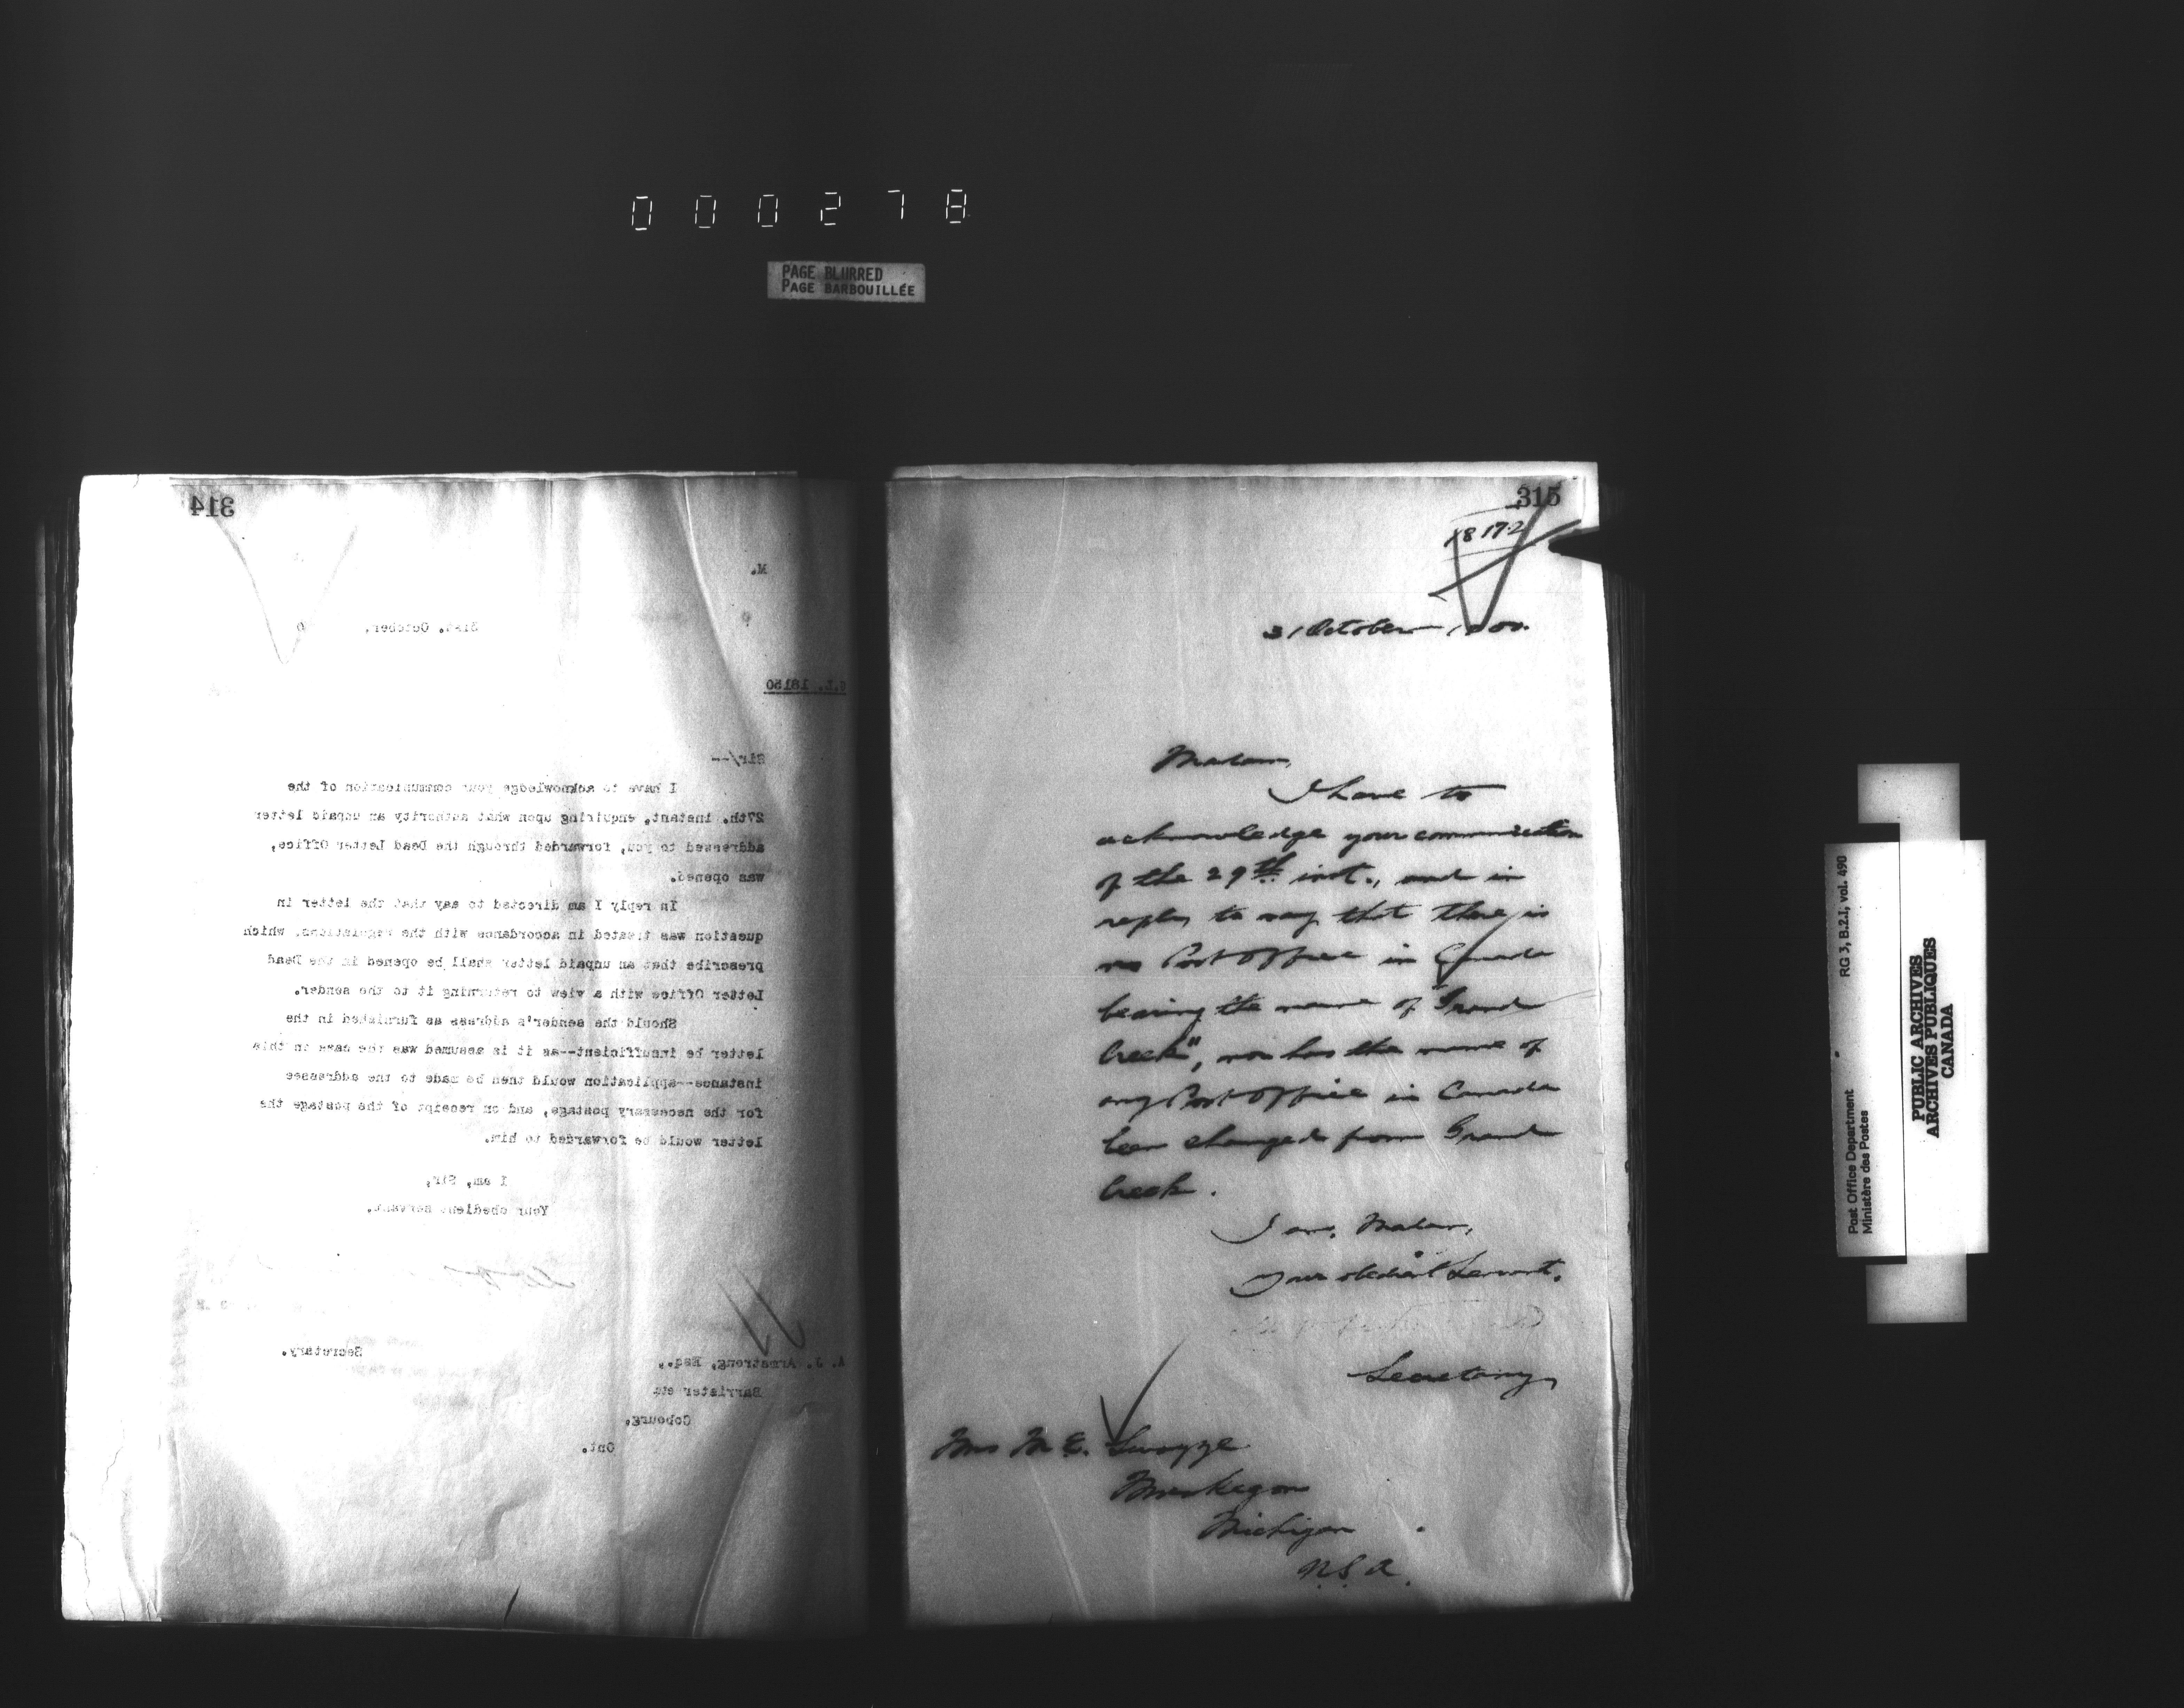 000278
PAGE BLURRED
PAGE BARBOUILLÉE
314
M.
31st. October,
G.L. 18150
Sir/--
I have to acknowledge your communication of the
27th. instant, enquiring upon what authority an unpaid letter
addressed to you, forwarded through the Dead Letter Office,
was opened.
In reply I am directed to say that the letter in
question was treated in accordance with the regulations, which
prescribe that an unpaid letter shall be opened in the Dead
Letter Office with a view to returning it to the sender.
Should the sender's address as furnished in the
letter be insufficient--as it is assumed was the case in this
instance--application would then be made to the addressee
for the necessary postage, and on receipt of the postage the
letter would be forwarded to him.
I am, Sir,
Your obedient servant.
Secretary.
A. J. Armstrong, Esq.,
Barrister etc
Cobourg,
Ont.
315
18172
31 October 1900.
Madam,
I have to
acknowledge your communication
of the 29th inst., and in
reply to say that there is
no Post Office in Canada
bearing the name of "Grand
Creek", nor has the name of
any Post Office in Canada
been changed from Grand
Creek.
I am, Madam,
Your obedient Servant.
Secretary
Mrs M E. Swayze
Muskegon
Michigan
U.S.A.
RG 3, B.2.I, vol. 490
Post Office Department
Ministère des Postes
PUBLIC ARCHIVES
ARCHIVES PUBLIQUES
CANADA